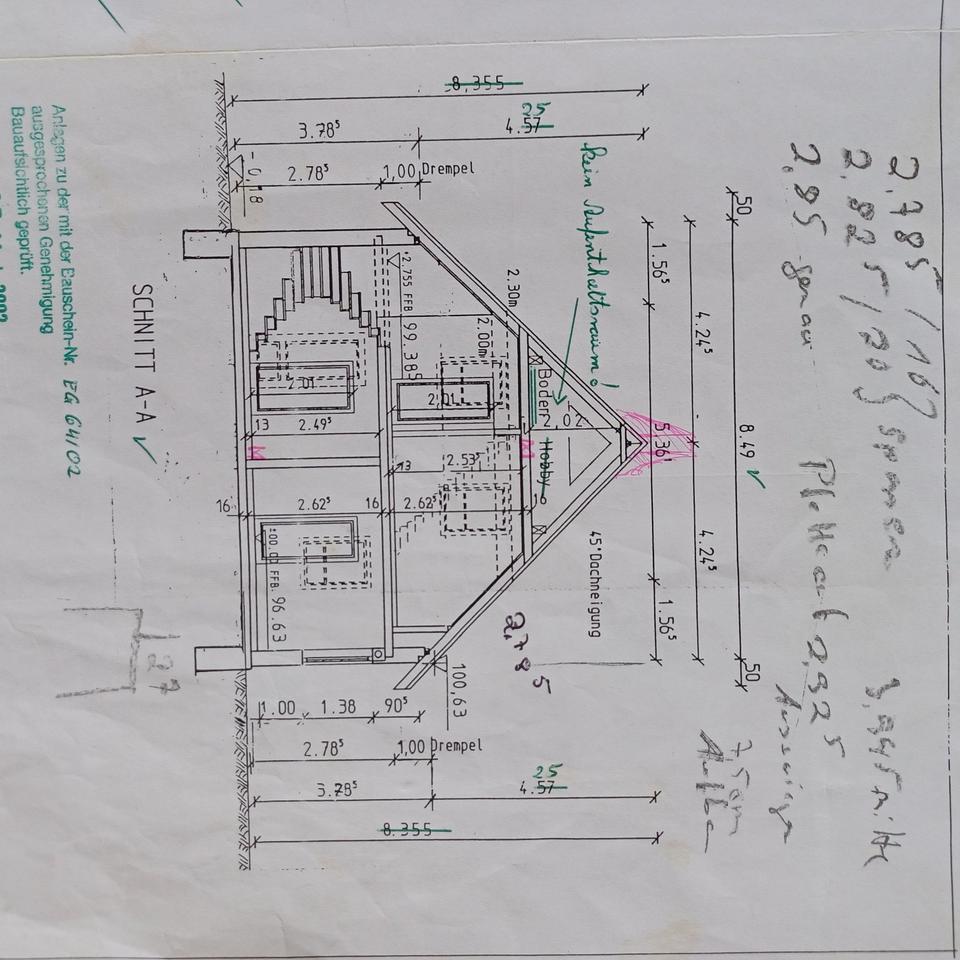 2,785 / 16
2,825 / 20
2,85 genau
7,5 cm
8.49
50
50
4.24⁵
4.24⁵
1.56⁵
5.36
1.56⁵
8,355
25
4.57
3.78⁵
2.78⁵
1,00 Drempel
-0,18
kein Aufenthaltsraum!
2.30m
2.00m
+2,755 FFB 99,385
Boden
2,02
Hobby
45° Dachneigung
2,785
2.01
2.01
13
2.49⁵
M
M
13
2.53⁵
16
2.62⁵
16
2.62⁵
±00.00 FFB. 96.63
100,63
1.00
1.38
90⁵
2.78⁵
1,00 Drempel
3.78⁵
25
4.57
8.355
27
SCHNITT A-A
Anlagen zu der mit der Bauschein-Nr. EG 64/02
ausgesprochenen Genehmigung
Bauaufsichtlich geprüft.